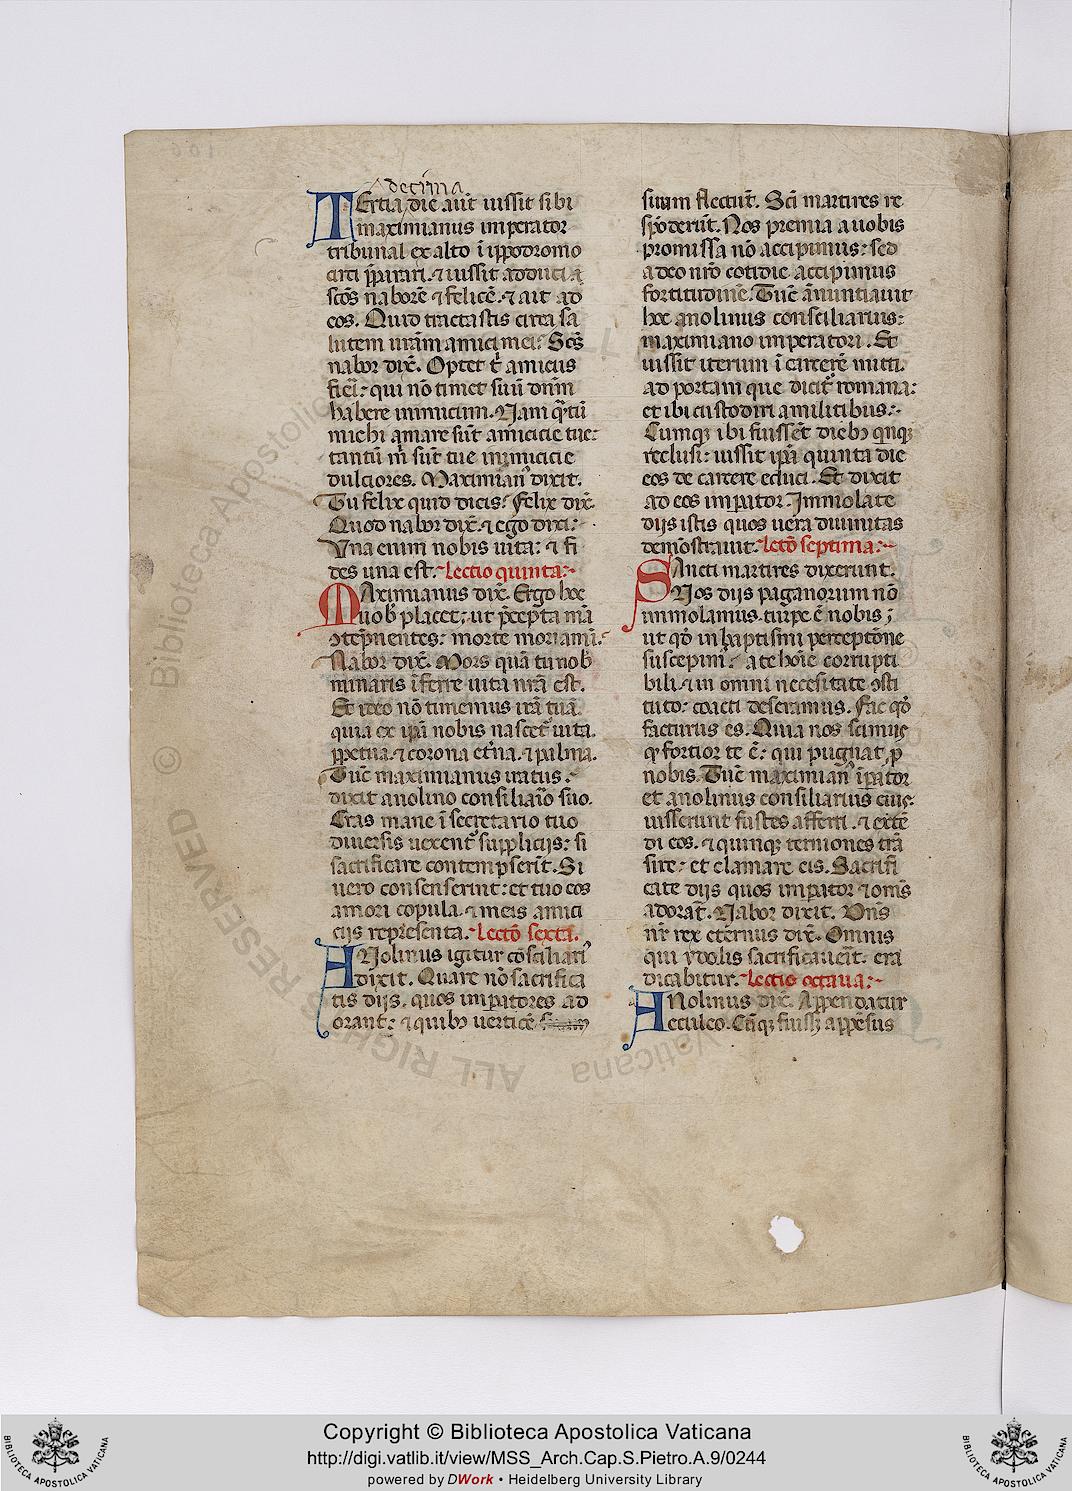 decima
TErtia die aut̃ iussit sibi
maximianus imperator
tribunal ex alto ĩ ippodromo
circi p̃parari. ⁊ iussit adduci
scõs naborẽ ⁊ felicẽ. ⁊ ait ad
eos. Quid tractastis circa sa
lutem urãm amici mei? Scũs
nabor dix̃. Optet t̃ amicus
fieri: qui nõ timet suũ dñm
habere inimicum. Nam
michi amare sũt amicicie tue:
tantũ m̃ sũt tue inimicicie
dulciores. Maximian᾽ dixit.
Tu felix quid dicis? Felix dix̃.
Quod nabor dix̃. ⁊ ego dixi:
Vna enim nobis uita: ⁊ fi
des una est. Lectio quinta:
MAximianus dix̃. Ergo hec
uob̃ placet; ut p̃cepta mã
ↄtẽpnentes: morte moriamĩ.
Nabor dix̃. Mors quã tu nob̃
minaris ĩferre uita nrã est.
Et ideo nõ timemus irã tuã.
quia ex ip̃a nobis nascet᷑ uita
p̱petua. ⁊ corona etẽna. ⁊ palma.
Tũc maximianus iratus:
dixit anolino consiliario suo.
Cras mane ĩ secretario tuo
diuersis uexent᷑ suppliciis: si
sacrificare contempserĩt. Si
uero consenserint: et tuo eos
amori copula. ⁊ meis amici
ciis representa. Lectõ sexta.
ANolinus igitur cõsiliari᾽
dixit. Quare nõ sacrifica
tis diis. quos imp̱atores ad
orant: ⁊ quibꝫ uerticẽ
suum flectũt. Sc̃i martires re
sp̃oderũt. Nos premia a uobis
promissa nõ accipimus: sed
a deo nrõ cotidie accipimus
fortitudinẽ. Tũc ãnuntiauit
hec anolinus consciliarius:
maximiano imperatori. Et
iussit iterum ĩ carcerẽ mitti.
ad portam que dicit᷑ romana:
et ibi custodiri a militibus:
Cumqꝫ ibi fuissẽt diebꝫ qͥnqꝫ
reclusi: iussit ip̃a quinta die
eos de carcere educi. Et dixit
ad eos imp̱ator. Immolate
diis istis quos uera diuinitas
demõstrauit. Lectõ septima:
SAncti martires dixerunt.
Nos diis paganorum nõ
immolamus. turpe ẽ nobis;
ut qͦd in baptismi perceptõne
suscepim᾽: a te hoĩe corrupti
bili. ⁊ in omni necesitate ↄsti
tuto: coacti deseramus. Fac qͦd
facturus es. Quia nos scimus
qꝫ fortior te ẽ: qui pugnat p̱
nobis. Tũc maximian᾽ ĩp̱ator
et anolinus consiliarius eius:
iusserunt fustes afferri. ⁊ extẽ
di eos. ⁊ quinqꝫ terniones trã
sire: et clamare eis. Sacrifi
cate diis quos imp̱ator ⁊ oms̃
adorãt. Nabor dixit. Vnũs
nr̃ rex eternus dix̃. Omnis
qui ydolis sacrificauẽit: era
dicabitur. Lectio octaua:
ANolinus dix̃. Appendatur
eculeo. Cũqꝫ fuissꝫ appẽsus
Copyright © Biblioteca Apostolica Vaticana
http://digi.vatlib.it/view/MSS_Arch.Cap.S.Pietro.A.9/0244
powered by DWork • Heidelberg University Library
BIBLIOTECA APOSTOLICA VATICANA
BIBLIOTECA APOSTOLICA VATICANA
© Biblioteca Apostolica Vaticana
ALL RIGHTS RESERVED